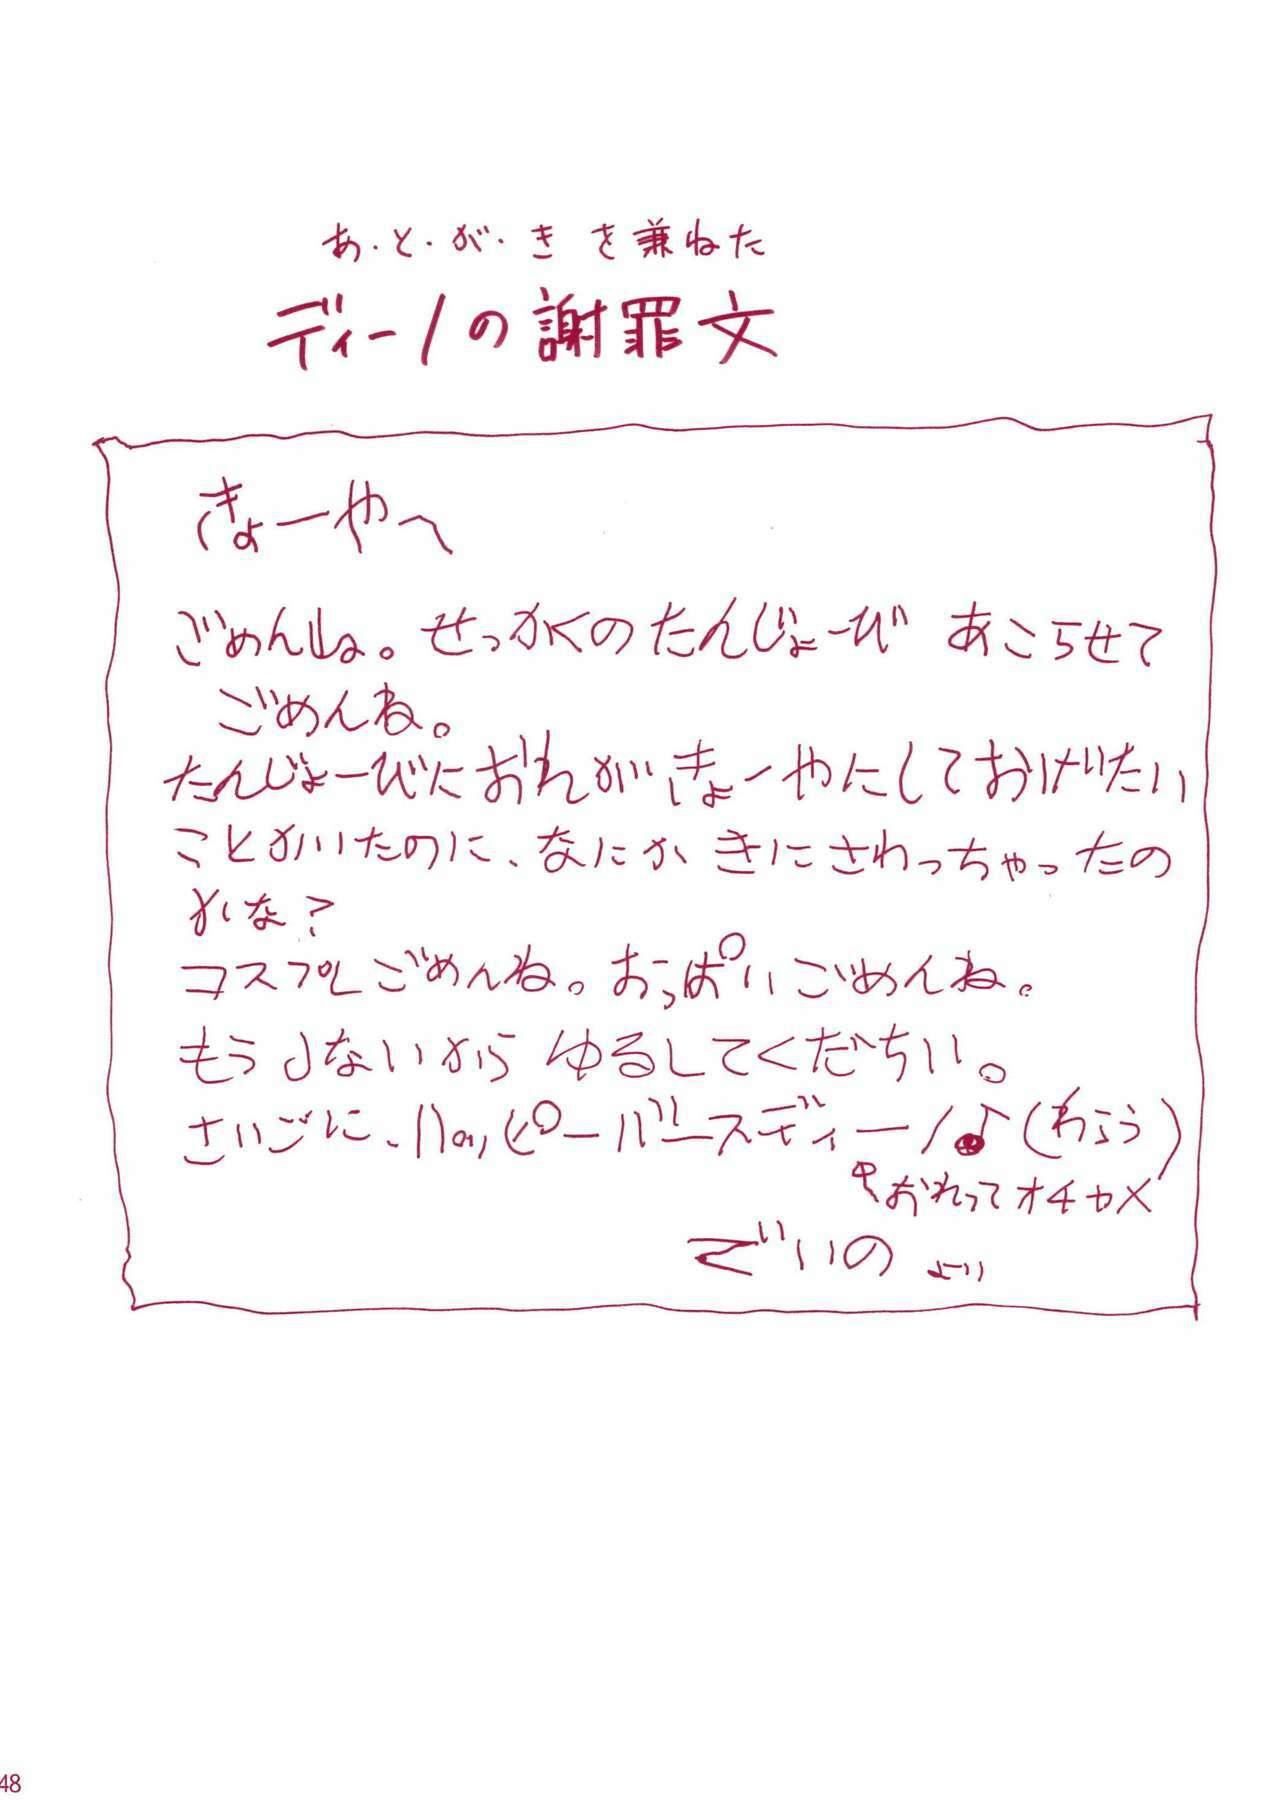 あ・と・が・き を兼ねた
ディーノの謝罪文
きょーやへ
ごめんね。せっかくのたんじょーび あこらせて
ごめんね。
たんじょーびにおれがきょーやにしておげたい
ことかいたのに、なにか きにさわっちゃったの
かな?
コスプレごめんね。おっぱいごめんね。
もうしないから ゆるしてくだちい。
さいごに、ハッピーバースディーノ♪(わらう)
おれってオチャメ
でいいの より
48